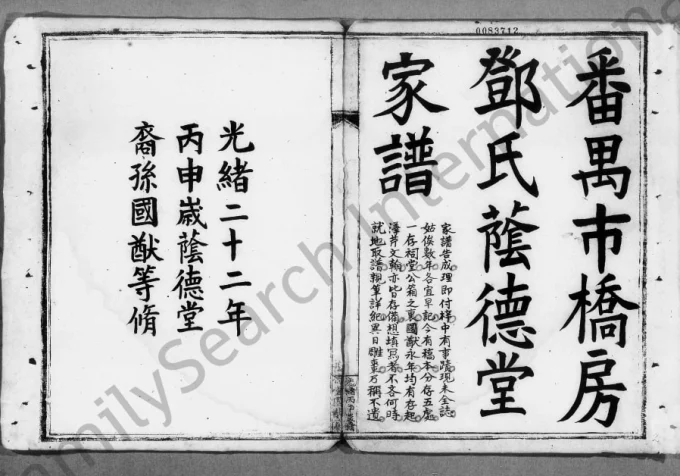 0083712
番禺市橋房
鄧氏蔭德堂
家譜
家譜告成理即付梓中有事蹟現未全誌
姑俟數年各宜早記今有稿本分存五處
一存祠堂公箱之裏國猷永年均有存起
海芹文翰亦皆存備想填寫者不吝何時
就地取譜親筆詳紀異日雕重萬稱不遺
光緒二十二年
丙申歲蔭德堂
裔孫國猷等脩
FamilySearch International